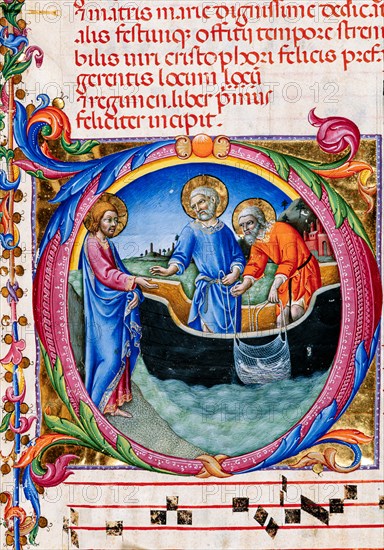 matris marie dignissime dedicati
alis festiuiq; offitij tempore stren
bilis uiri cristophori felicis pref
gerentis locum locu
regimen. liber primus
feliciter incipit.
PHOTO 12